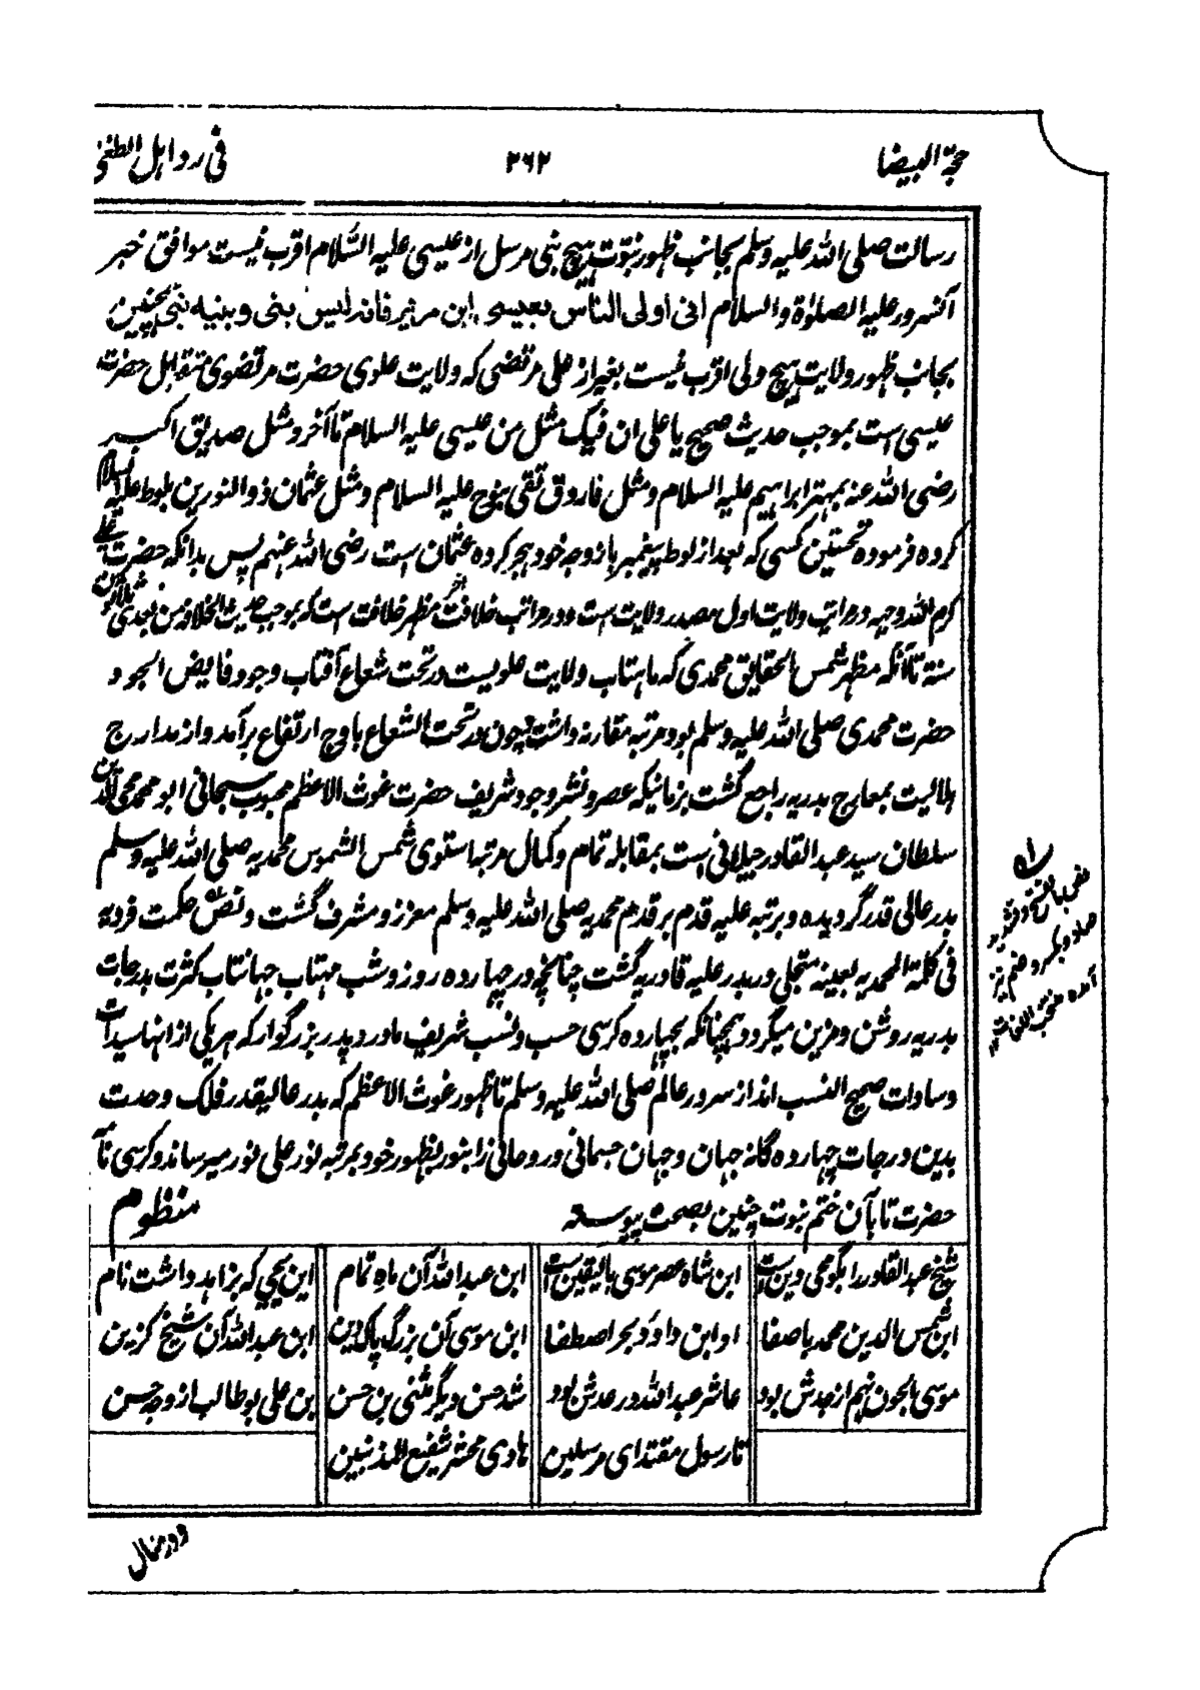 حجة البیضا
۲۶۲
فی رد اہل الطغی
رسالت صلی اللہ علیہ وسلم بجانب ظہور نبوت ہیچ نبی مرسل از عیسی علیہ السلام اقرب نیست موافق خبر
آنسرور علیہ الصلوٰۃ والسلام انی اولی الناس بعیسی ابن مریم فانہ لیس بنی و بینہ نبی ہمچنین
بجانب ظہور ولایت ہیچ ولی اقرب نیست بغیر از علی مرتضی کہ ولایت علوی حضرت مرتضوی متقابل حضرت
عیسی است بموجب حدیث صحیح یا علی ان فیک مثل من عیسی علیہ السلام تا آخر و مثل صدیق اکبر
رضی اللہ عنہ بمہتر ابراہیم علیہ السلام و مثل فاروق تقی بنوح علیہ السلام و مثل عثمان ذوالنورین بلوط علیہ السلام
کردہ فرمودہ نخستین کسی کہ بعد از لوط پیغمبر با زوجہ خود ہجر کردہ عثمان است رضی اللہ عنہم پس بدانکہ حضرت علی
کرم اللہ وجہہ در مراتب ولایت اول مصدر ولایت است و در مراتب خلافت آخر مظہر خلافت است کہ بموجب حدیث الخلافة من بعدی ثلاثون
سنة تا آنکہ مظہر شمس الحقایق محمدی کہ ماہتاب ولایت علویست در تحت شعاع آفتاب وجود فایض الجود
حضرت محمدی صلی اللہ علیہ وسلم بود مرتبہ مقارنہ داشت چون در تحت الشعاع باوج ارتفاع برآمد و از مدارج
ہلالیت بمعارج بدریہ راجع گشت بزمانیکہ عصر و نشر وجود شریف حضرت غوث الاعظم محبوب سبحانی ابو محمد محی الدین
سلطان سید عبد القادر جیلانی است بمقابلہ تمام و کمال مرتبہ استوی شمس الشموس محمدیہ صلی اللہ علیہ وسلم
بدر عالی قدر گردیدہ و برتبہ علیہ قدم بر قدم محمدیہ صلی اللہ علیہ وسلم معزز و مشرف گشت و نص حکمت فردیہ
فی کلمة المحمدیہ بعینہ متجلی در بدر علیہ قادریہ گشت چنانچہ در چہاردہ روز و شب مہتاب جہانتاب کثرت بدرجات
بدریہ روشن و مزین میگردد ہمچنانکہ بچہاردہ کرسی حسب و نسب شریف مادر و پدر بزرگوار کہ ہر یکی از انہا سیدات
و سادات صحیح النسب اند از سرور عالم صلی اللہ علیہ وسلم تا ظہور غوث الاعظم کہ بدر عالیقدر فلک وحدت
بدین درجات چہاردہ گانہ جہان و جہان جسمانی و روحانی را بنور ظہور خود بمرتبہ نور علی نور میرساند و کرسی نامہ
حضرت تا بآن ختم نبوت چنین بصحت پیوستہ
منظوم
شیخ عبد القادر را بگو محی دین است ابن شاہ عصر موسی بالیقین است ابن عبد اللہ آن ماہ تمام ابن یحیی کہ بزاہد داشت نام
ابن شمس الدین محمد با صفا او ابن داؤد بحر اصطفا ابن موسی آن بزرگ پاکدین ابن عبد اللہ آن شیخ گزین
موسی بالجون نہم از جدش بود عاشر عبد اللہ در عدش بود شد حسن دیگر مثنی بن حسن بن علی بو طالب از وجہ حسن
تا رسول مقتدای مرسلین ہادی محشر شفیع المذنبین
نص بالفتح و تشدید
صاد و بکسر و ضم نیز
آمدہ منتخب اللغات